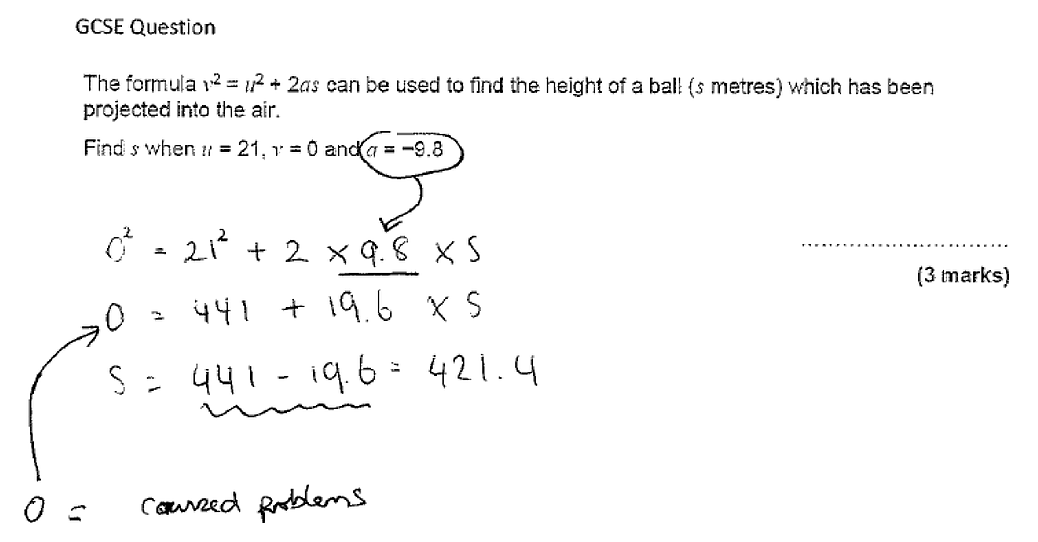 GCSE Question
The formula v² = u² + 2as can be used to find the height of a ball (s metres) which has been
projected into the air.
Find s when u = 21, v = 0 and a = −9.8
0² = 21² + 2 × 9.8 × S
0 = 441 + 19.6 × S
(3 marks)
S = 441 - 19.6 = 421.4
0 = caused problems